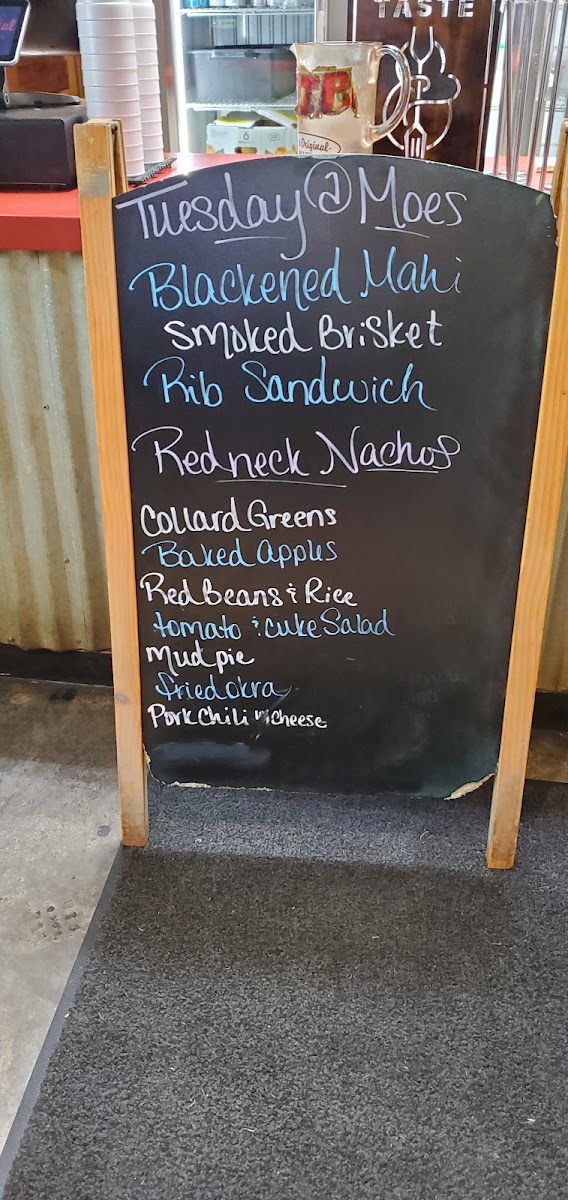 TASTE
Original
Tuesday @ Moes
Blackened Mahi
Smoked Brisket
Rib Sandwich
Redneck Nachos
Collard Greens
Baked Apples
Red Beans & Rice
tomato & cuke Salad
Mud pie
fried okra
Pork Chili w/ cheese